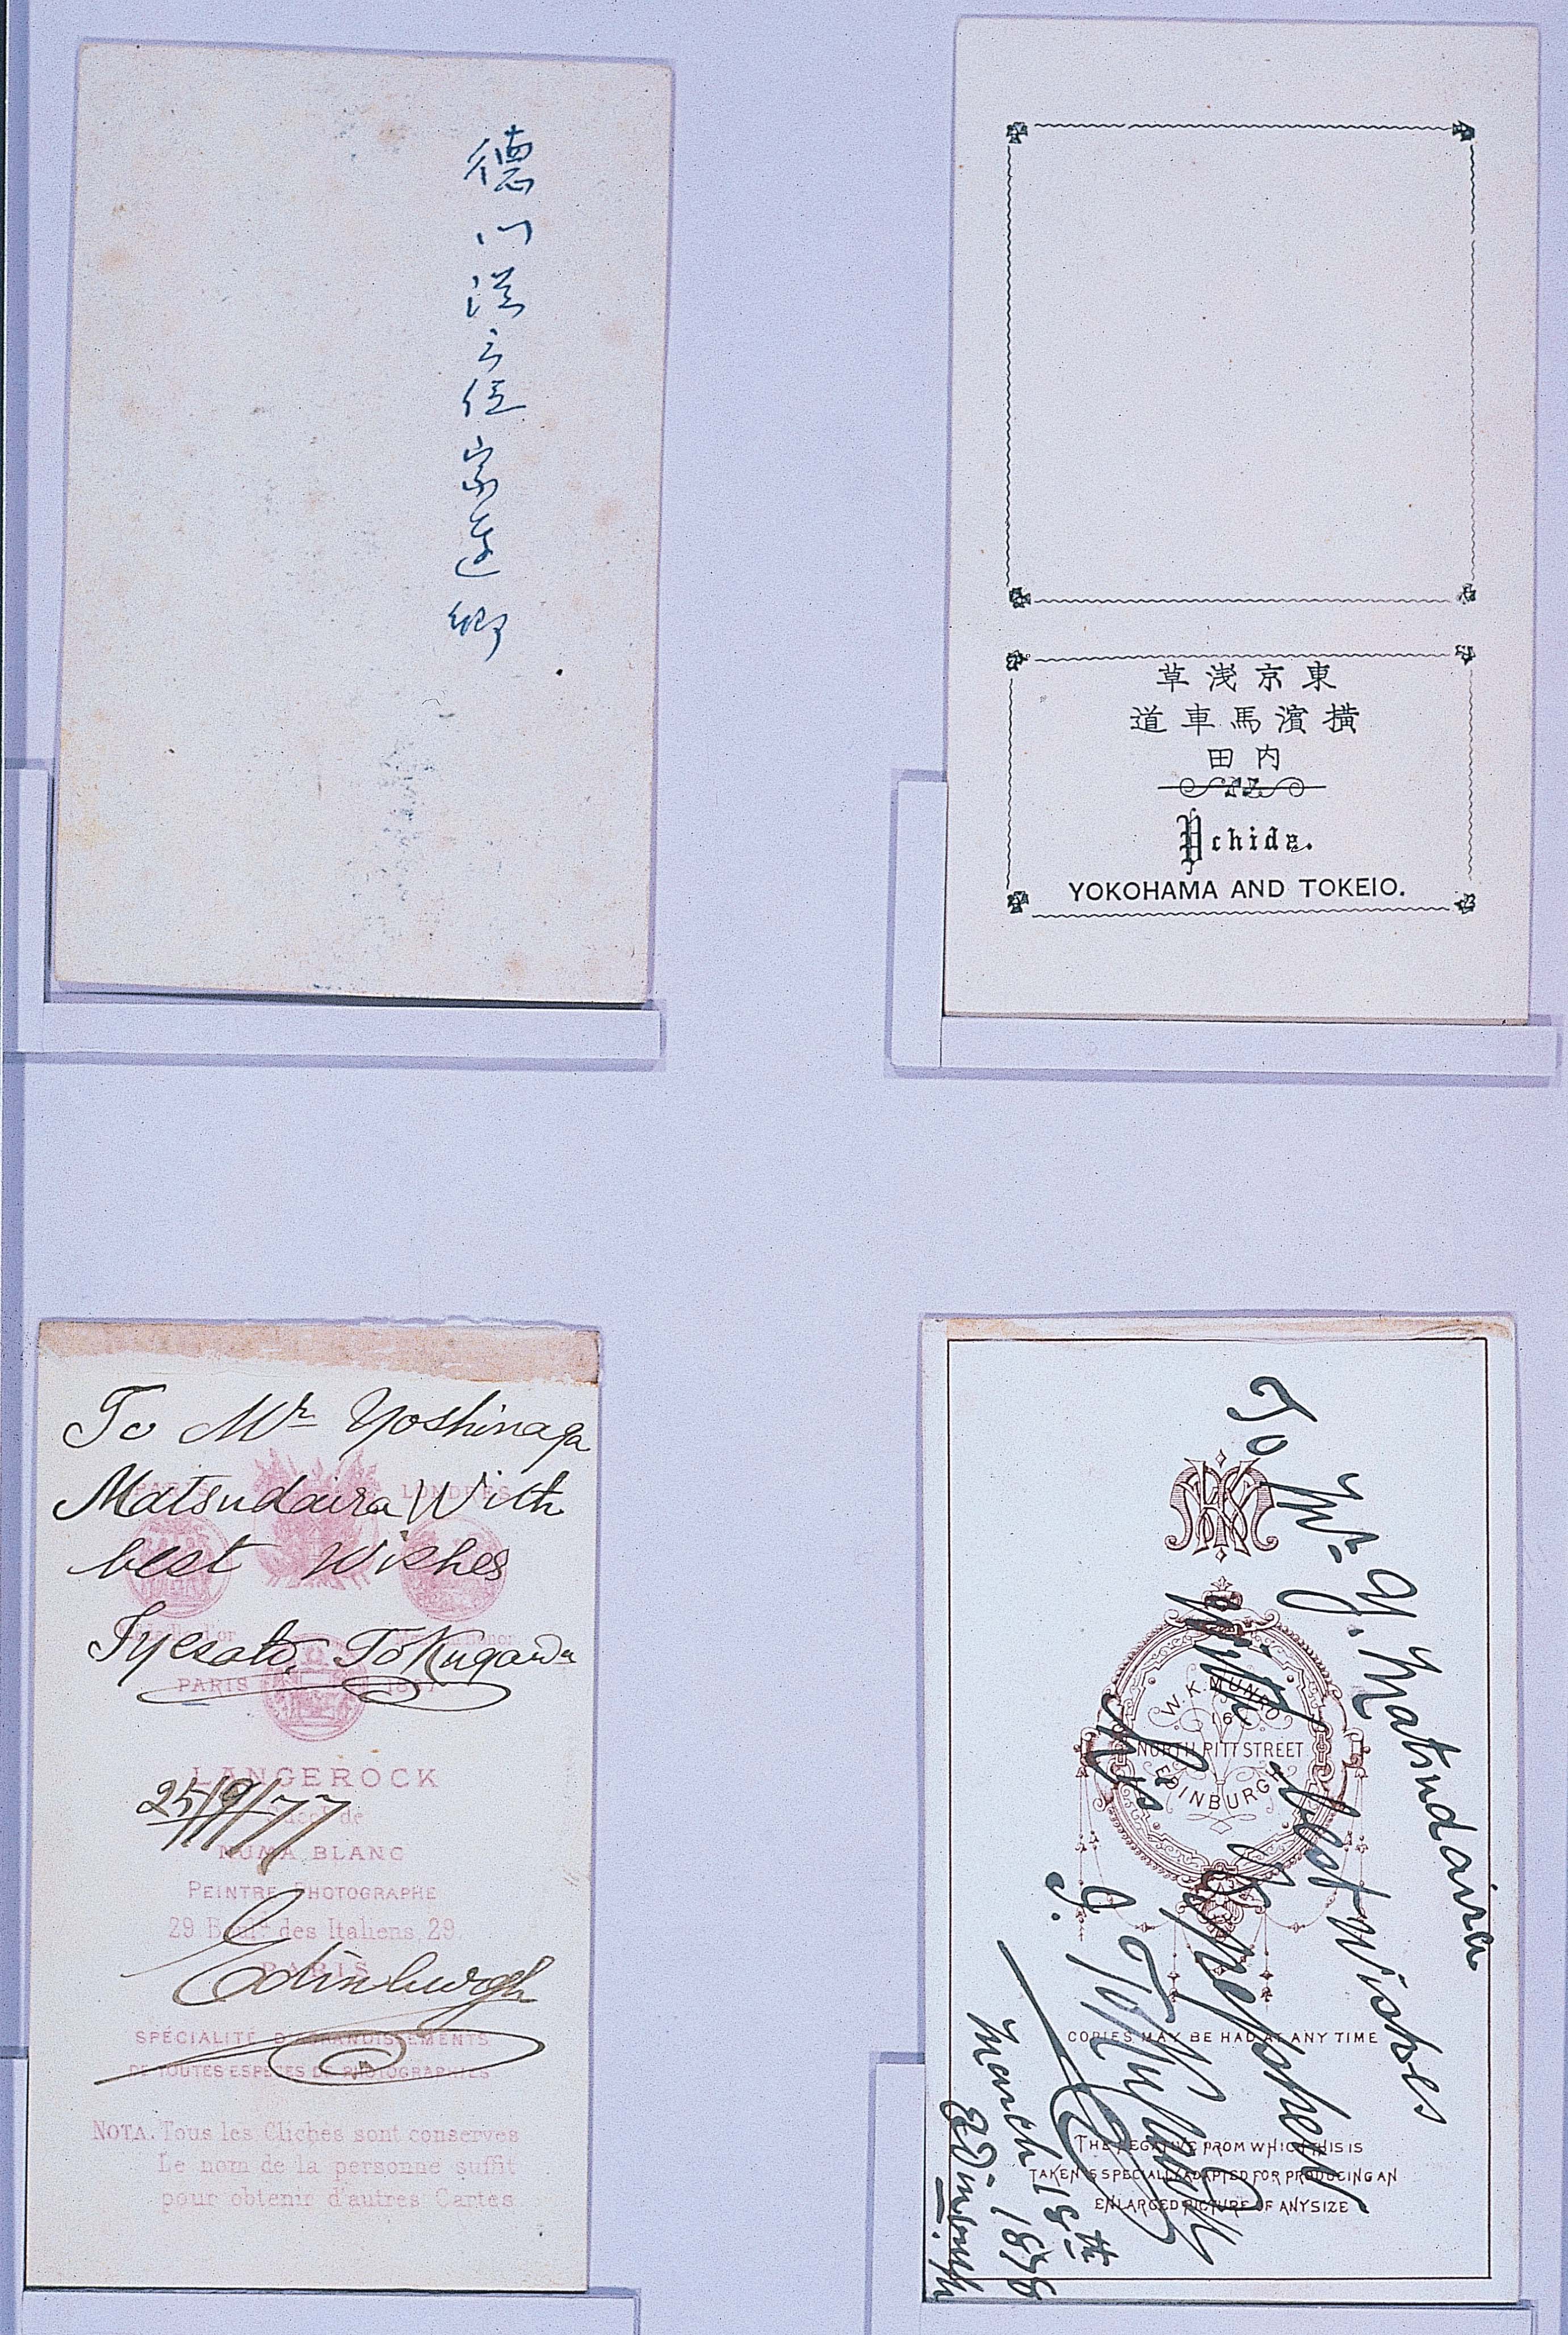 德川従三位家達卿
東京淺草
橫濱馬車道
内田
Uchida.
YOKOHAMA AND TOKEIO.
To Mr Yoshinaga
Matsudaira With
best Wishes
Iyesato, Tokugawa
25/9/77
Edinburgh
LONDRES
PARIS
LANGEROCK
NUMA BLANC
PEINTRE PHOTOGRAPHE
29 Boult des Italiens, 29.
PARIS
SPÉCIALITÉ D'AGRANDISSEMENTS
DE TOUTES ESPÈCES DE PHOTOGRAPHIES
NOTA. Tous les Clichés sont conservés
Le nom de la personne suffit
pour obtenir d'autres Cartes
To Mr. Y. Matsudaira
With best wishes
I. Tokugawa
March 18th 1878
Edinburgh
W. K. MUNRO
16
NORTH PITT STREET
EDINBURGH
COPIES MAY BE HAD AT ANY TIME
THE NEGATIVE FROM WHICH THIS IS
TAKEN IS SPECIALLY ADAPTED FOR PRODUCING AN
ENLARGED PICTURE OF ANY SIZE